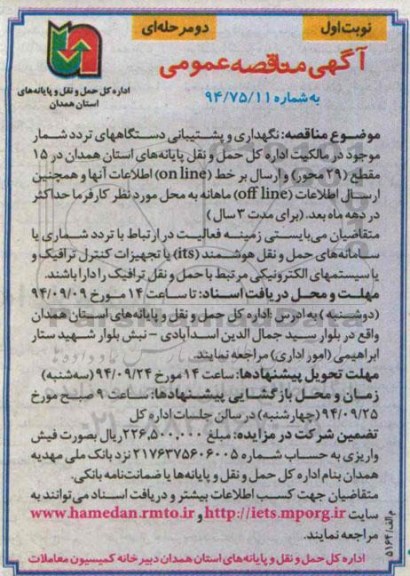 نوبت اول
دو مرحله‌ای
آگهی مناقصه عمومی
به شماره ۹۴/۷۵/۱۱
اداره کل حمل و نقل و پایانه‌های
استان همدان
موضوع مناقصه: نگهداری و پشتیبانی دستگاههای تردد شمار
موجود در مالکیت اداره کل حمل و نقل پایانه‌های استان همدان در ۱۵
مقطع (۲۹ محور) و ارسال بر خط (on line) اطلاعات آنها و همچنین
ارسال اطلاعات (off line) ماهانه به محل مورد نظر کارفرما حداکثر
در دهه ماه بعد. (برای مدت ۳ سال)
متقاضیان می‌بایستی زمینه فعالیت در ارتباط با تردد شماری یا
سامانه‌های حمل و نقل هوشمند (its) یا تجهیزات کنترل ترافیک و
یا سیستمهای الکترونیکی مرتبط با حمل و نقل ترافیک را دارا باشند.
مهلت و محل دریافت اسناد: تا ساعت ۱۴ مورخ ۹۴/۰۹/۰۹
(دوشنبه) به ادرس :اداره کل حمل و نقل و پایانه‌های استان همدان
واقع در بلوار سید جمال الدین اسدآبادی - نبش بلوار شهید ستار
ابراهیمی (امور اداری) مراجعه نمایند
مهلت تحویل پیشنهادها: ساعت ۱۴ مورخ ۹۴/۰۹/۲۴ (سه‌شنبه)
زمان و محل بازگشایی پیشنهادها: ساعت ۹ صبح مورخ
۹۴/۰۹/۲۵ (چهارشنبه) در سالن جلسات اداره کل
تضمین شرکت در مزایده: مبلغ ۲۲۶,۵۰۰,۰۰۰ ریال بصورت فیش
واریزی به حساب شماره ۲۱۷۶۳۷۵۶۰۶۰۰۵ نزد بانک ملی مهدیه
همدان بنام اداره کل حمل و نقل و پایانه‌ها یا ضمانت‌نامه بانکی.
متقاضیان جهت کسب اطلاعات بیشتر و دریافت اسناد می‌توانند به
سایت http://iets.mporg.ir و www.hamedan.rmto.ir
مراجعه نمایند.
م الف/ ۵۱۶۴
اداره کل حمل و نقل و پایانه‌های استان همدان دبیرخانه کمیسیون معاملات